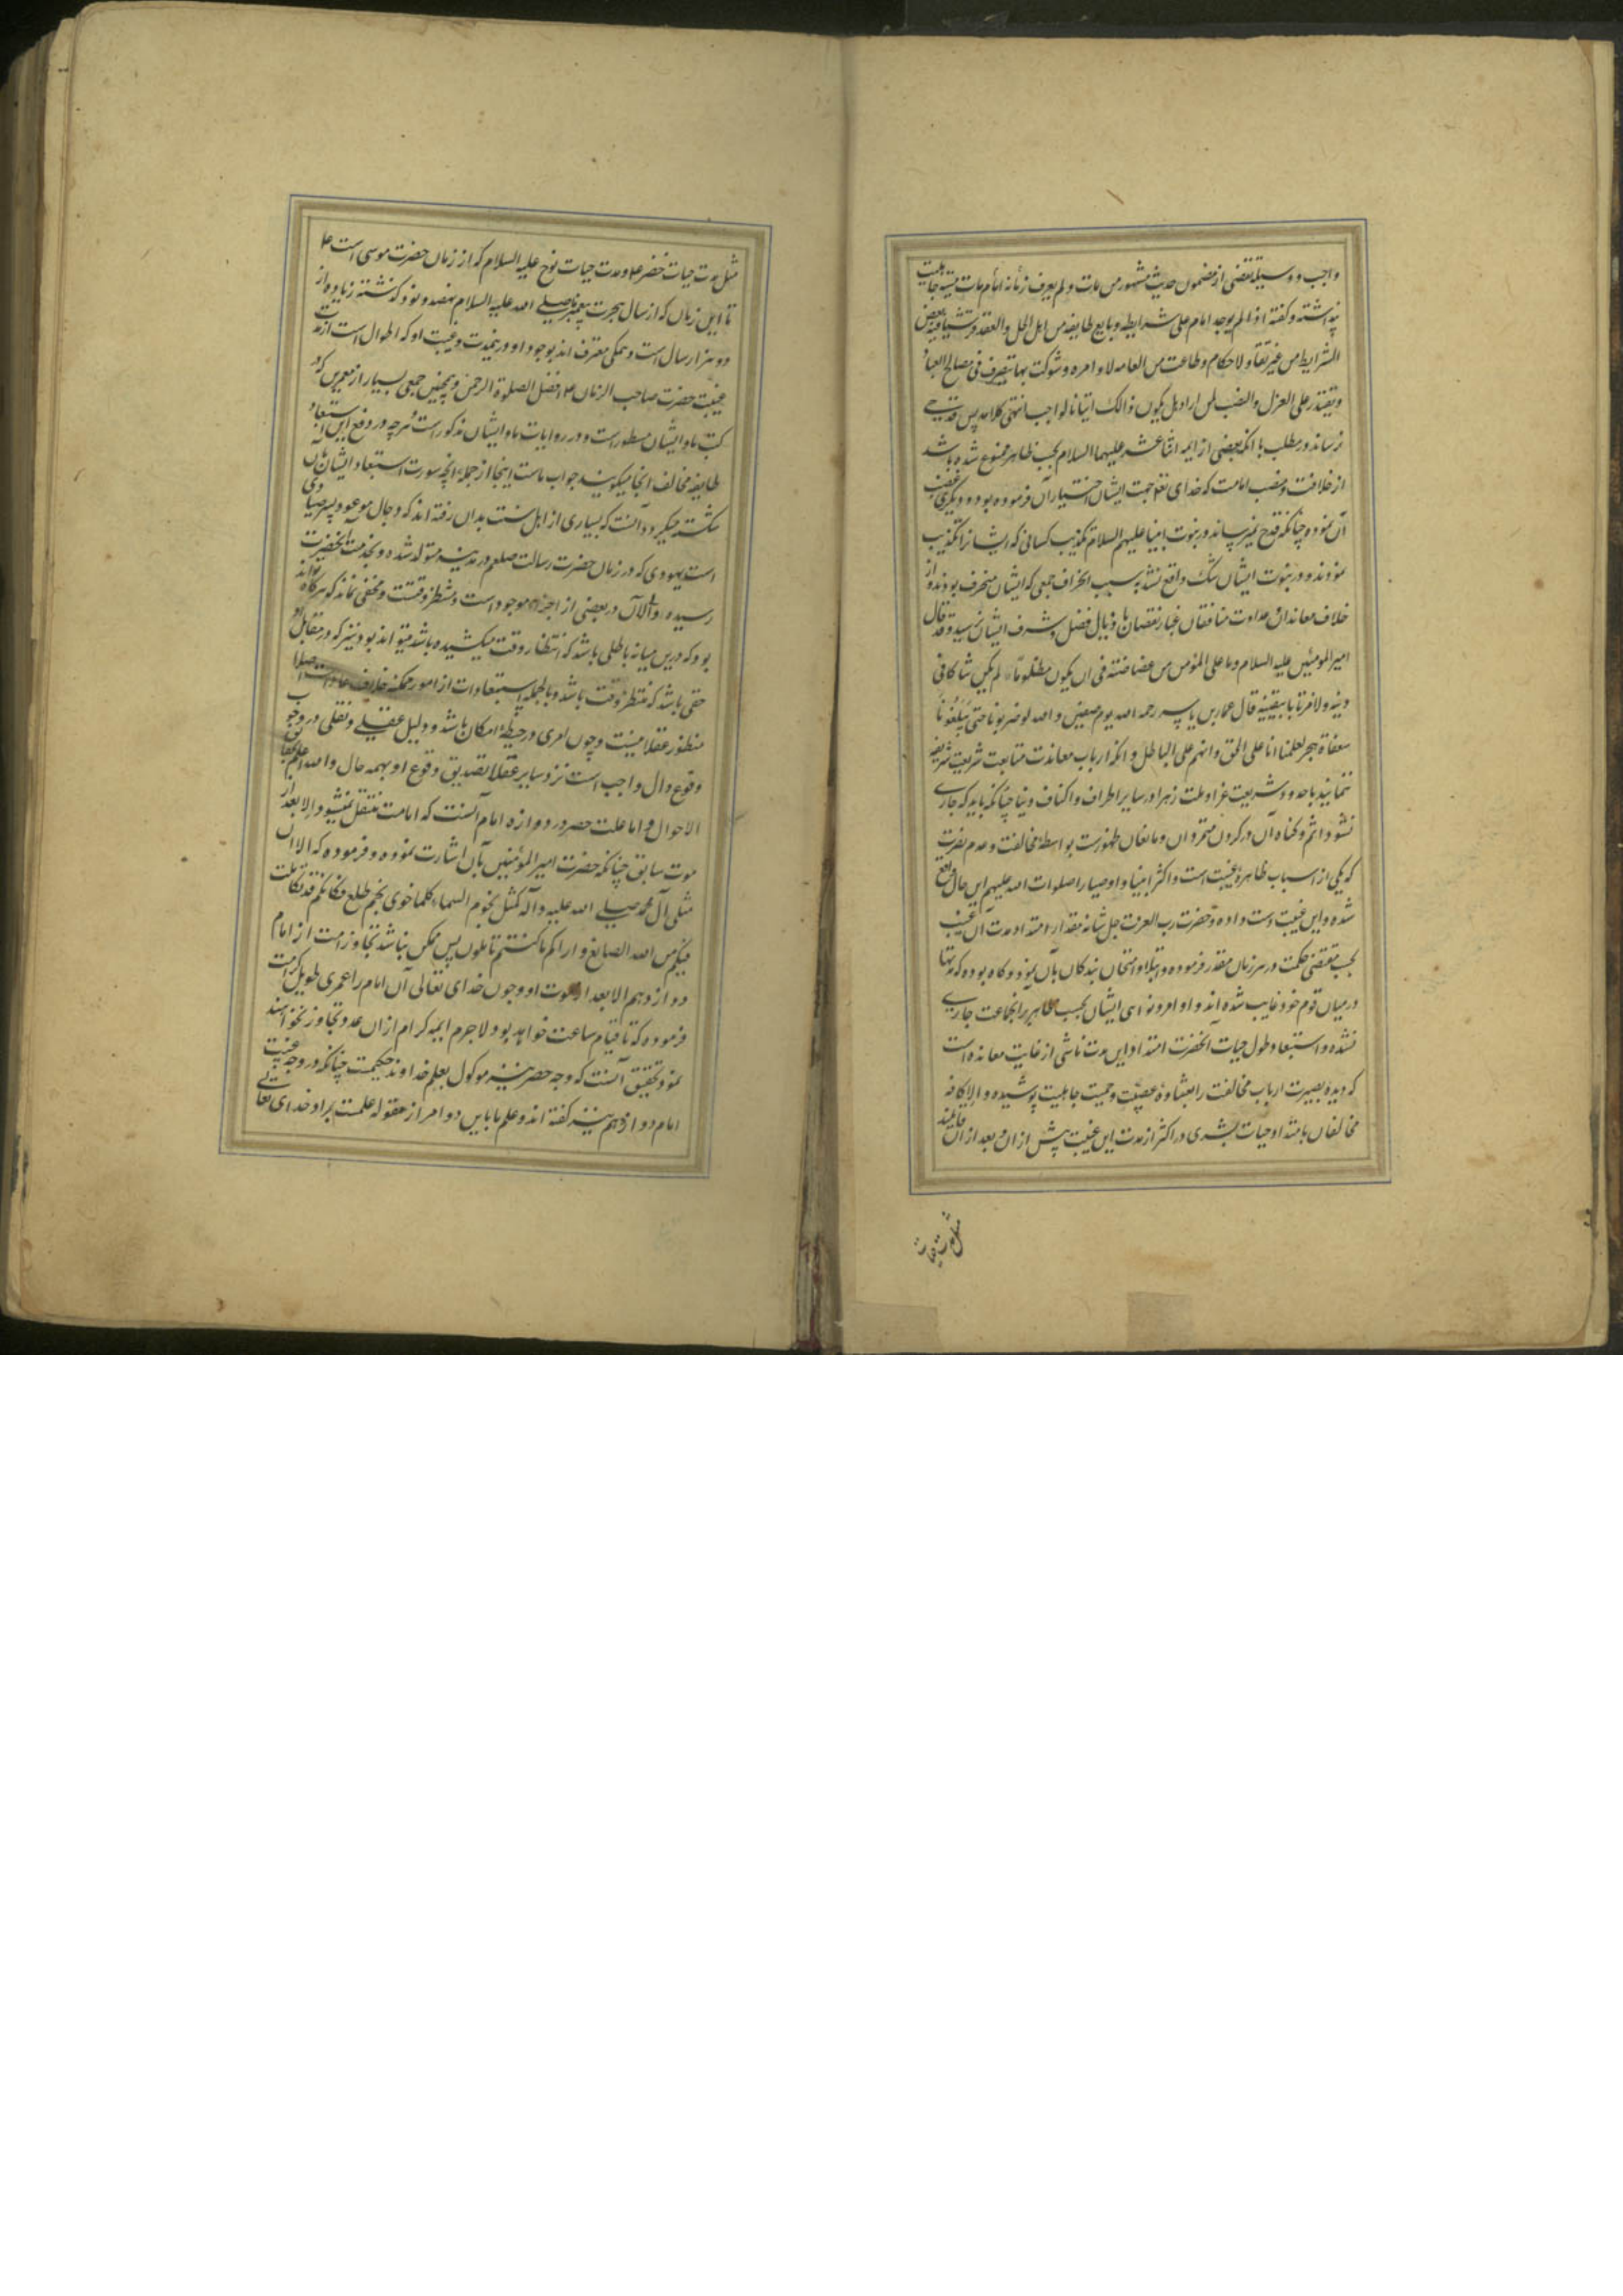 واجب و وسیله تقصی از مضمون حدیث مشهور من مات و لم یعرف زمانه امام مات میتة جاهلیت
پنداشته و گفته اذا لم یوجد امام علی شرایطه و بایع طایفه من اهل الحل والعقد قرشیا فیه بعض
الشرایط من غیر نفاذ لاحکام و طاعت من العامه لاوامره و شوکت بها یتصرف فی مصالح العباد
و یقتدر علی العزل والنصب لمن اراد هل یکون ذالک اتیانا لواجب انتهی کلامه پس قدحی
نرساند در مطلب با آنکه بعضی از ایمه اثنا عشر علیهما السلام بحسب ظاهر ممنوع شده باشد
از خلافت و منصب امامت که خدای تعو جهت ایشان اختیار آن فرموده بود و دیگری غصب
آن نموده چنانکه قدح نمیرساند در نبوت انبیا علیهم السلام تکذیب کسانی که ایشانرا تکذیب
نمودند و در نبوت ایشان شک واقع نشد بسبب انحراف جمعی که ایشان منحرف بودند و از
خلاف معاندان و عداوت منافقان غبار نقصان باذیال فضل و شرف ایشان نرسید و قد قال
امیر المومنین علیه السلام و ما علی المؤمن من غضاضته فی ان یکون مظلوما لم یکن شاکا فی
دینه ولا مرتابا بیقینه قال عمار بن یاسر رحمه الله یوم صفین والله لو ضربونا حتی یبلغونا
سعفاة هجر لعلمنا انا علی الحق و انهم علی الباطل و آنکه ارباب معاندت متابعت شریعت شریفه
ننمایند با حدود شریعت غرا و ملت زهرا در سایر اطراف و اکناف دنیا چنانکه باید که جاری
نشود اثم و گناه آن در گردن متمردان و مانعان ظهورست بواسطهٔ مخالفت و عدم نصرت
که یکی از اسباب ظاهرهٔ غیبت است و اکثر انبیا و اوصیا را صلوات الله علیهم این حال واقع
شده و این غیبت دست داده و حضرت رب العزت جل شانه مقدار امتداد مدت آن غیبت
بحسب مقتضی حکمت در هر زمان مقدر فرموده و ابتلا و امتحان بندگان بآن نموده و گاه بوده که مدتها
در میان قوم خود غایب شده اند و اوامر و نواهی ایشان بحسب ظاهر بر آنجماعت جاری
نشده و استبعاد طول حیات آنحضرت امتداد این مدت ناشی از غایت معانده است
که دیده بصیرت ارباب مخالفت را بغشاوهٔ عصبیت و حمیت جاهلیت پوشیده و الا کافه
مخالفان بامتداد حیات بشری در اکثر از مدت این غیبت پیش از ان و بعد از ان قایلند
مثل مدت حیات
مثل مدت حیات خضر ع و مدت حیات نوح علیه السلام که از زمان حضرت موسی است ع
تا این زمان که از سال هجرت پیغمبر ما صلی الله علیه السلام نهصد و نود گذشته زیاده از
دو هزار سال است و همگی معترف اند بوجود او درینمدت و غیبت او که اطول است از مدت
غیبت حضرت صاحب الزمان ع افضل الصلوة الرحمن و همچنین جمعی بسیار از معمرین که در
کتب ما و ایشان مسطورست و در روایات ما و ایشان مذکور است و هر چه در دفع این استبعاد
طایفه مخالف آنجا میگویند جواب ماست اینجا از جمله آنچه سورت استبعاد ایشان بآن
شکسته میگردد آنست که بسیاری از اهل سنت بدان رفته اند که دجال موعود پسر صیاد
است یهودی که در زمان حضرت رسالت صلعم در مدینه متولد شده و بخدمت آنحضرت
رسیده و الآن در بعضی از جزایر موجود است و منتظر وقتست و مخفی نماند که هرگاه تواند
بود که درین میانه باطلی باشد که انتظار وقت میکشیده باشد میتواند بود نیز که در مقابل او
حقی باشد که منتظر وقت باشد و بالجمله استبعادات از امور ممکنه خلاف عادات اصلا
منظور عقلا نیست و چون امری در حیطهٔ امکان باشد و دلیل عقلی و نقلی در وجوب
وقوع دال واجب است نزد سایر عقلا تصدیق وقوع او بهمه حال والله اعلم بحقایق
الاحوال و اما علت حصر در دوازده امام آنست که امامت منتقل نمیشود الا بعد از
موت سابق چنانکه حضرت امیر المؤمنین بآن اشارت نموده و فرموده که الا ان
مثل آل محمد صلی الله علیه و آله کمثل نجوم السماء کلما خوی نجم طلع فکانکم قد تکاملت
فیکم من الله الصنایع و اراکم ما کنتم تاملون پس ممکن نباشد تجاوز امامت از امام
دوازدهم الا بعد از موت او و چون خدای تعالی آن امام را عمری طویل کرامت
فرموده که تا قیام ساعت خواهد بود ولا جرم ایمه کرام از ان عدد تجاوز نخواهند
نمود و تحقیق آنست که وجه حصر نیز موکول بعلم خداوند حکیمست چنانکه در وجه غیبت
امام دوازدهم نیز گفته اند و علم ما باین دو امر از مقوله علمست بمراد خدای تعالی